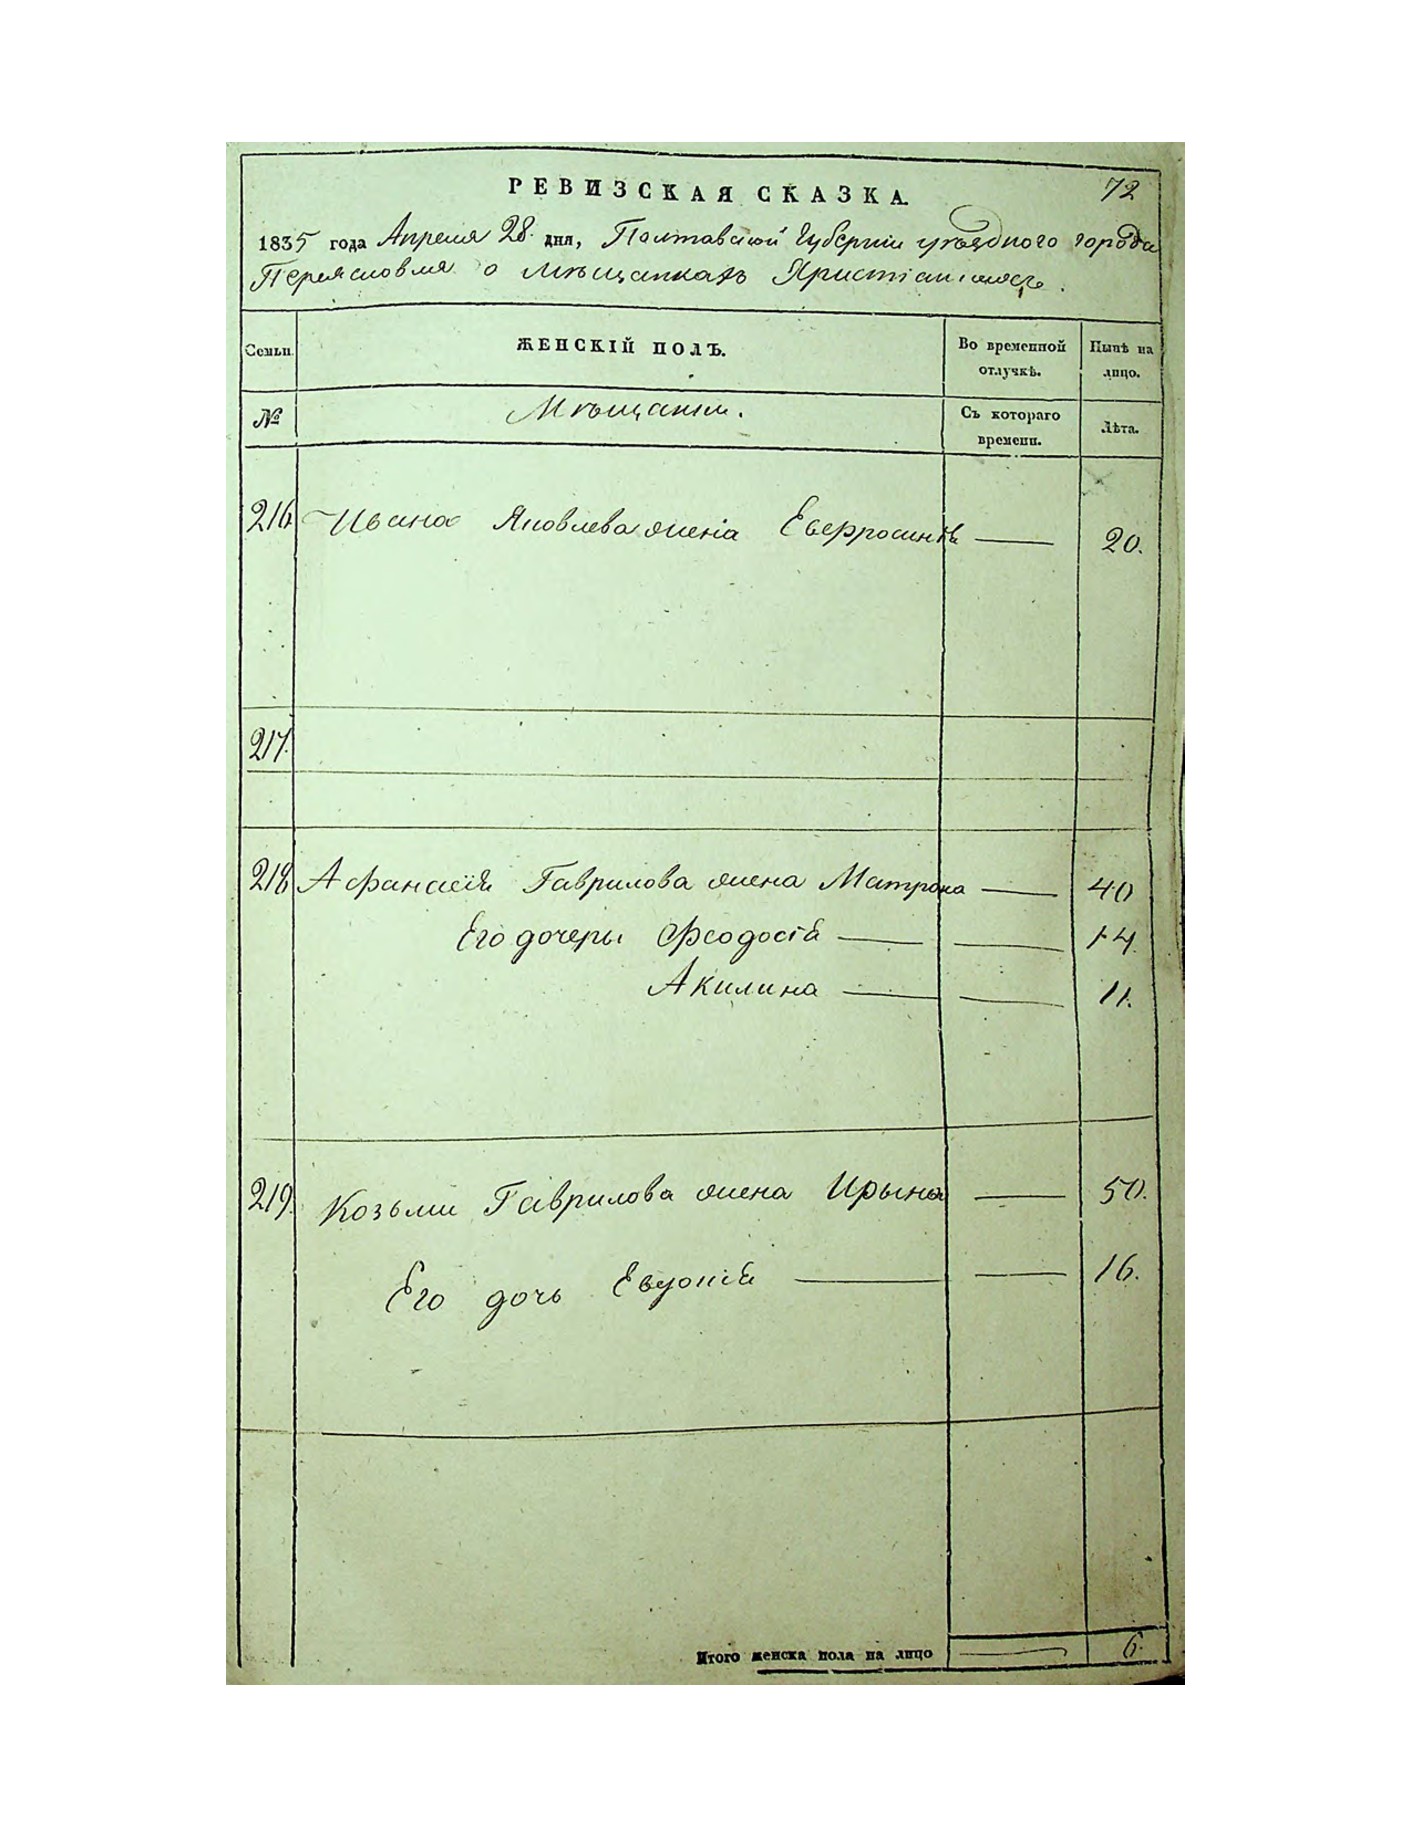 РЕВИЗСКАЯ СКАЗКА.
72
1835 года Апреля 28. дня, Полтавской Губернии уѣзднаго города
Переяславля о мѣщанкахъ Христіанкахъ.
Семьи.
ЖЕНСКІЙ ПОЛЪ.
Во временной отлучкѣ.
Нынѣ на лицо.
№
Мѣщанки.
Съ котораго времени.
Лѣта.
216 Ивана Яковлева жена Евфросинія — 20.
217.
218 Афанасія Гаврилова жена Матрона — 40
Его дочеры Феодосія — — 14.
Акилина — — 11.
219. Козьми Гаврилова жена Ирына — 50.
Его дочь Евдокія — — 16.
Итого женска пола на лицо — 6.